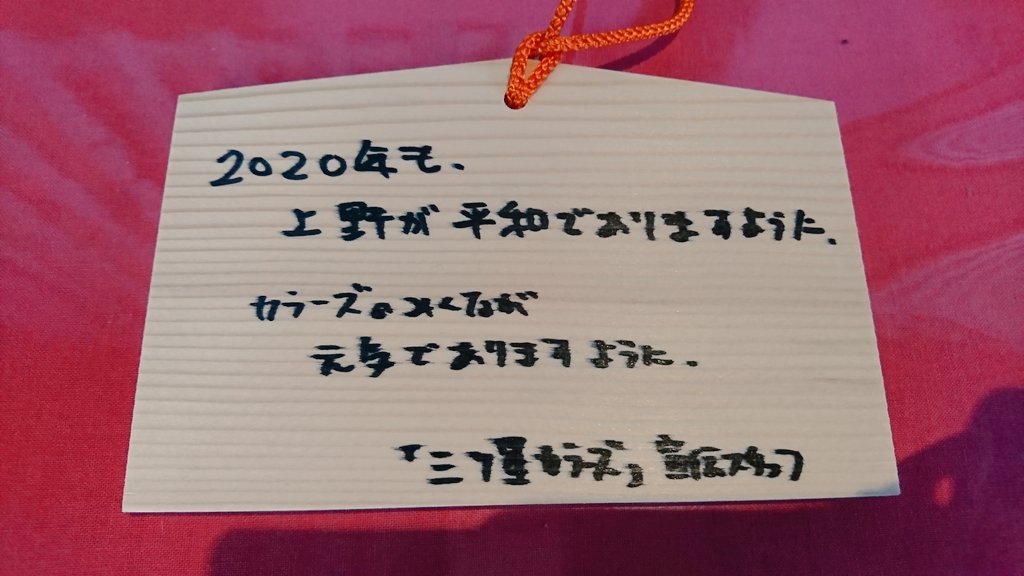 2020年も、
上野が平和でありますように、
カラーズのみんなが
元気でありますように.
『三ツ星カラーズ』宣伝スタッフ